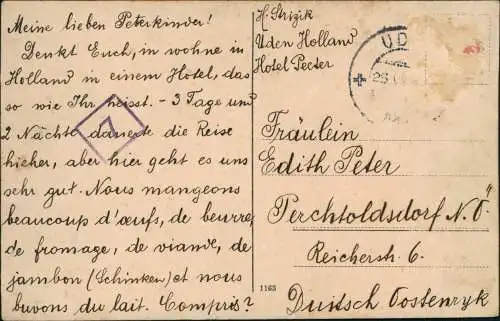 Meine lieben Peterkinder!
Denkt Euch, in wohne in
Holland in einem Hotel, das
so wie Ihr heisst. - 3 Tage und
2 Nächte dauerte die Reise
hieher, aber hier geht es uns
sehr gut. Nous mangeons
beaucoup d'œufs, de beurre,
de fromage, de viande, de
jambon (Schinken) et nous
buvons du lait. Compris?
7
H. Strizik
Uden Holland
Hotel Peeter
UD
Fräulein
Edith Peter
Perchtoldsdorf N.Ö.
Reicherstr. 6.
1163
Duitsch Oostenryk